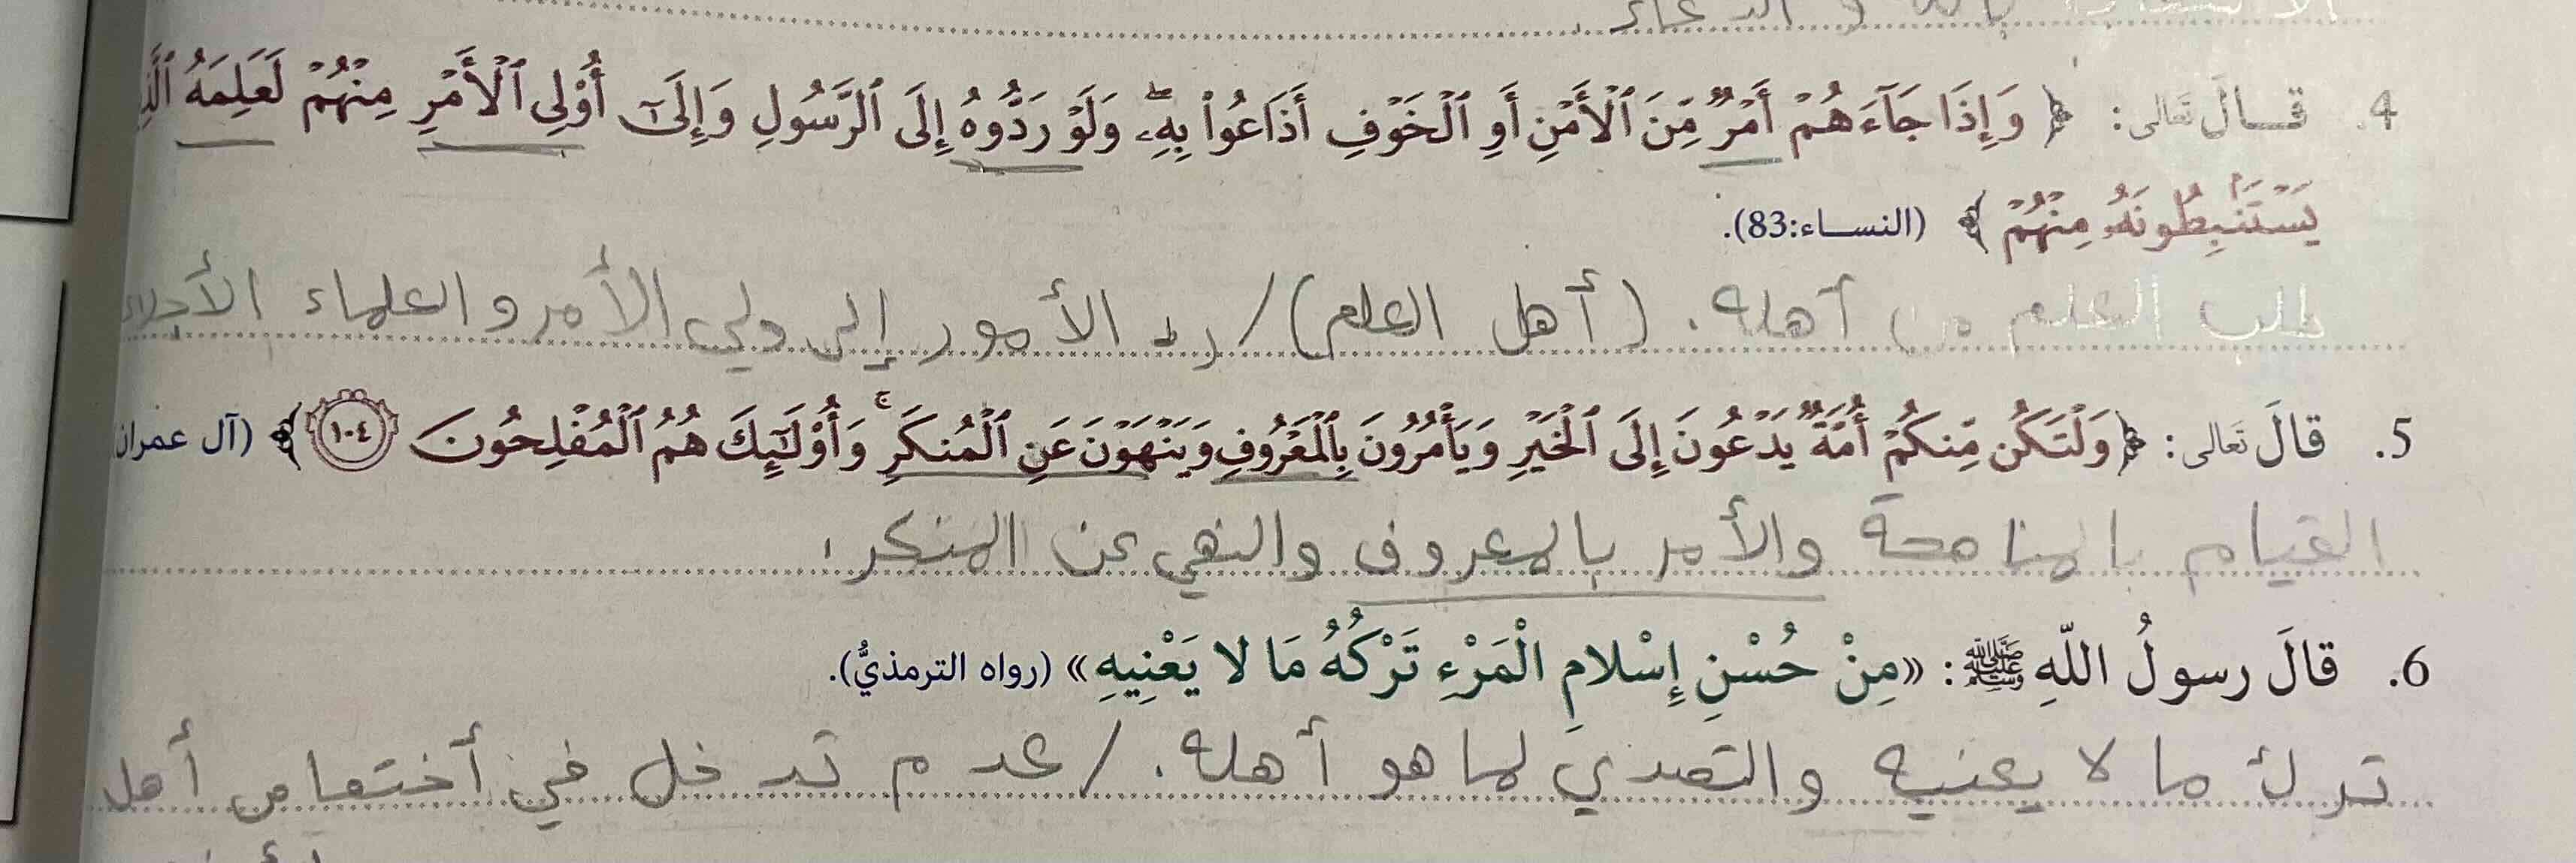 بالله و الدعاء.
4. قال تعالى: ﴿ وَإِذَا جَآءَهُمْ أَمْرٌ مِّنَ ٱلْأَمْنِ أَوِ ٱلْخَوْفِ أَذَاعُوا۟ بِهِۦ ۖ وَلَوْ رَدُّوهُ إِلَى ٱلرَّسُولِ وَإِلَىٰٓ أُو۟لِى ٱلْأَمْرِ مِنْهُمْ لَعَلِمَهُ
يَسْتَنۢبِطُونَهُۥ مِنْهُمْ ﴾ (النساء:83).
طلب العلم من أهله. (أهل العلم) / رد الأمور إلى ولي الأمر و العلماء
5. قالَ تَعالى: ﴿ وَلْتَكُن مِّنكُمْ أُمَّةٌ يَدْعُونَ إِلَى ٱلْخَيْرِ وَيَأْمُرُونَ بِٱلْمَعْرُوفِ وَيَنْهَوْنَ عَنِ ٱلْمُنكَرِ ۚ وَأُو۟لَٰٓئِكَ هُمُ ٱلْمُفْلِحُونَ ١٠٤ ﴾ (آل عمران
القيام بالمناصحة والأمر بالمعروف والنهي عن المنكر.
6. قالَ رسولُ اللّهِ ﷺ: «مِنْ حُسْنِ إِسْلامِ الْمَرْءِ تَرْكُهُ مَا لا يَعْنِيهِ» (رواه الترمذيُّ).
ترك ما لا يعنيه والتصدي لما هو أهله. / عدم تدخل في أختصاص أهل